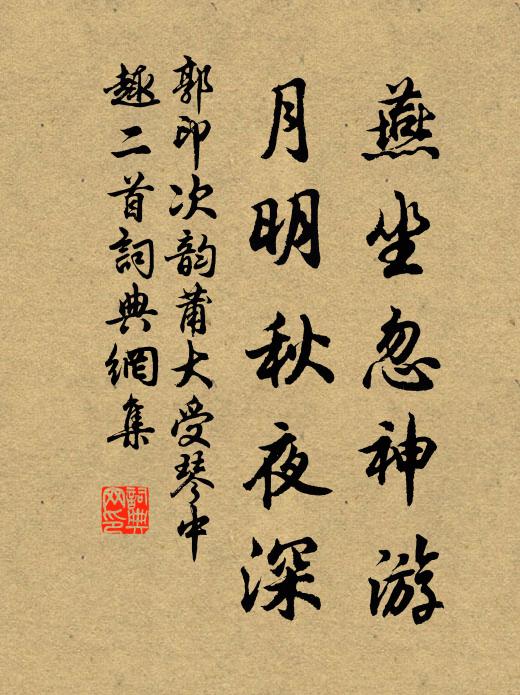 燕坐忽神游
月明秋夜深
郭印次韵莆大受琴中
趣二首詞典網集
詞典网印